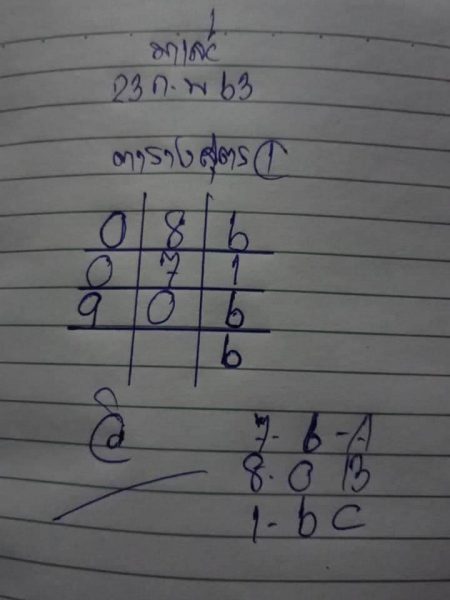 มาเลย์
23 ก.พ 63
ตารางสูตร ①
0 8 6
0 7 1
9 0 6
6
7-6-A
8.0 B
1-6 C